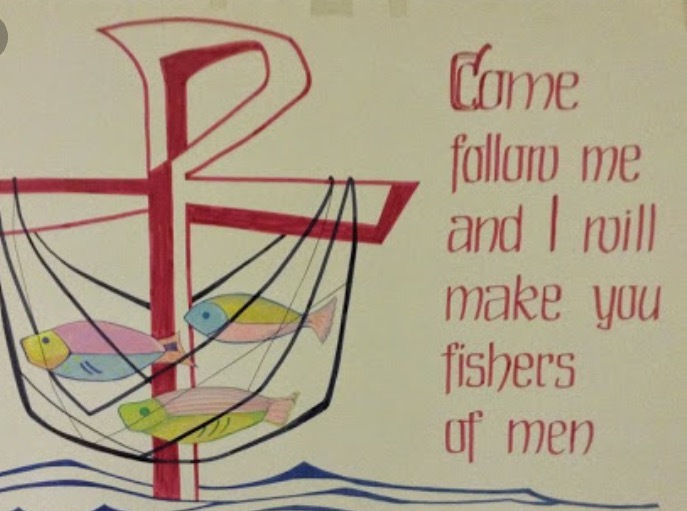 Come
follow me
and I will
make you
fishers
of men